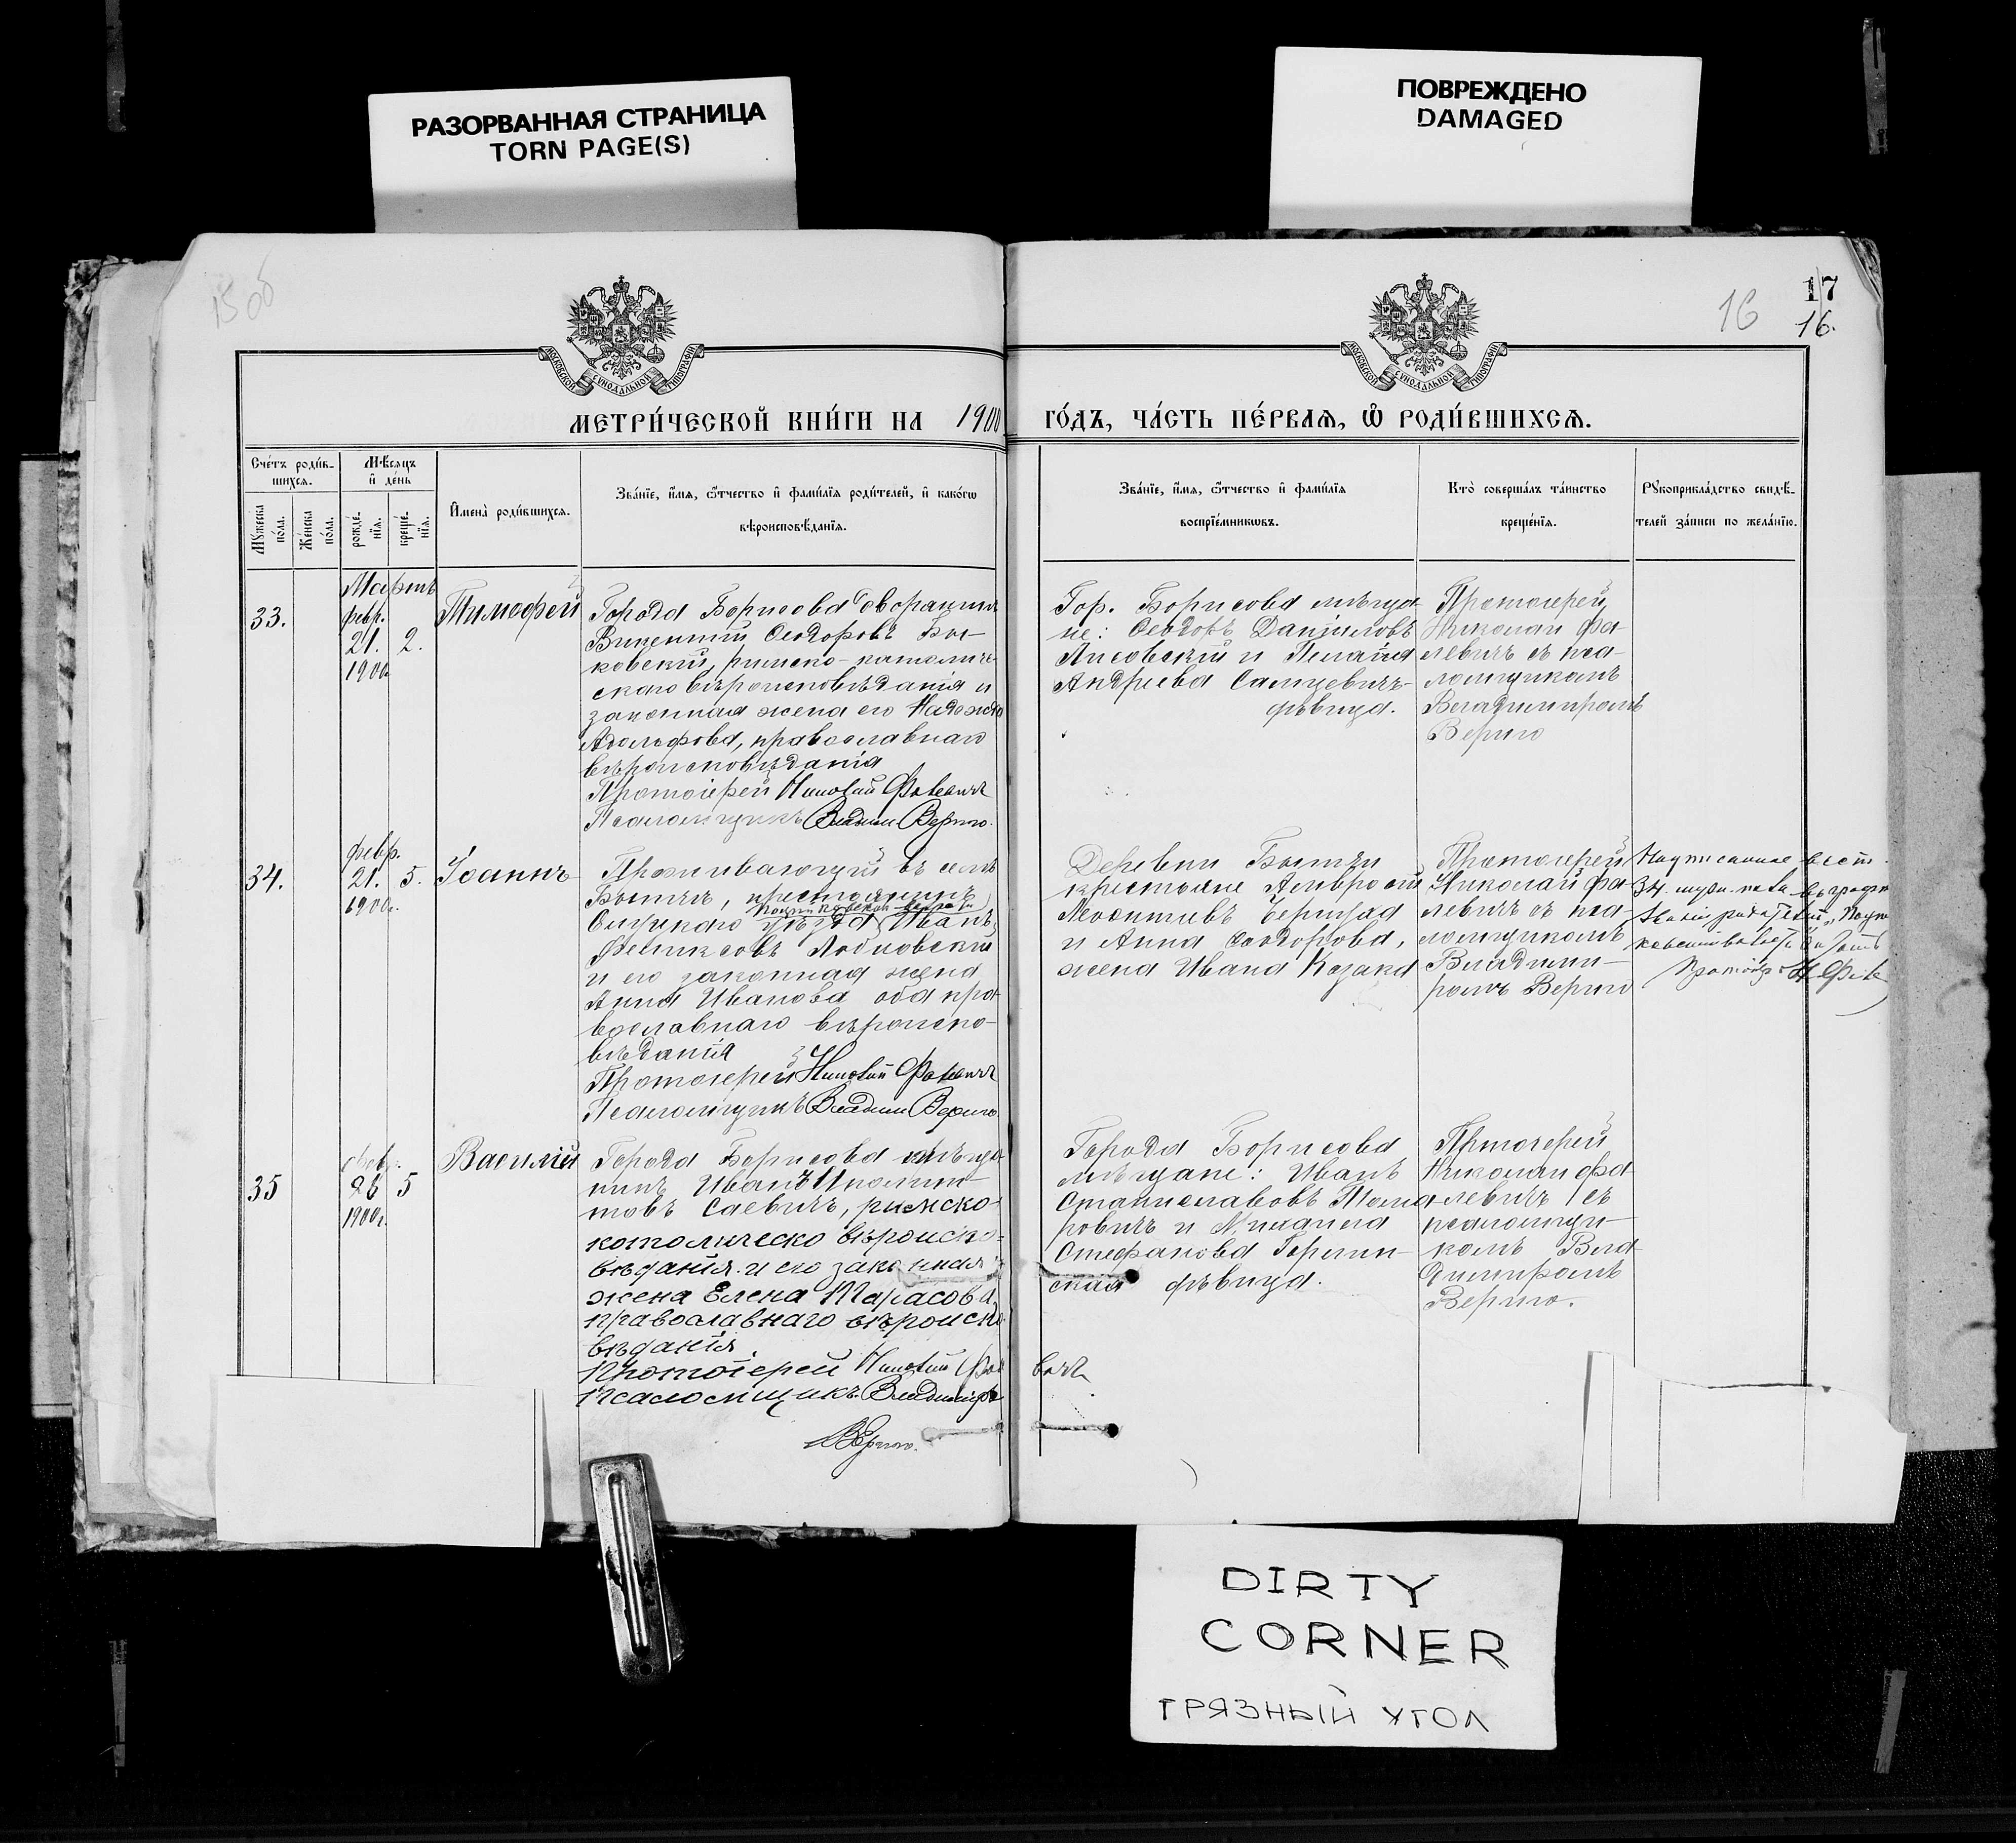 РАЗОРВАННАЯ СТРАНИЦА
TORN PAGE(S)
ПОВРЕЖДЕНО
DAMAGED
15 об
16
17
16.
МОСКОВСКОЙ СѴНОДАЛЬНОЙ ТИПОГРАФІИ
МОСКОВСКОЙ СѴНОДАЛЬНОЙ ТИПОГРАФІИ
МЕТРИ́ЧЕСКОЙ КНИ́ГИ НА 1900
ГО́ДЪ, ЧА́СТЬ ПЕ́РВАЯ, Ѽ РОДИ́ВШИХСЯ.
Сче́тъ роди́в-
шихся.
Мѣсяцъ
и҆ де́нь
Мꙋ́жеска
по́ла.
Же́нска
по́ла.
рожде́-
нїя.
креще́-
нїя.
И҆мена̀ роди́вшихся.
Зва́нїе, и҆́мя, ѻ҆́тчество и҆ фами́лїя роди́телей, и҆ како́гѡ
вѣроисповѣ́данїя.
Зва́нїе, и҆́мя, ѻ҆́тчество и҆ фами́лїя
воспрїе́мникѡвъ.
Кто̀ соверша́лъ та́инство
креще́нїя.
Рꙋкоприкла́дство свидѣ́-
телей за́писи по жела́нїю.
Мартъ
33.
февр.
21. 2.
1900
Тимофей
Города Борисова дворянинъ
Викентій Ѳеодоровъ Бы-
ковскій, римско-католиче-
скаго вѣроисповѣданія и
законная жена его Надежда
Адольфова, православнаго
вѣроисповѣданія
Протоіерей Николай Фалевичъ
Псаломщикъ Владим Верино.
Гор. Борисова мѣща-
не: Ѳеодоръ Даніиловъ
Лисовскій и Пелагія
Андреева Санцевичъ
дѣвица.
Протоіерей
Николай Фа-
левичъ съ пса-
ломщикомъ
Владиміромъ
Верино
34.
февр.
21. 5.
1900г.
Іоаннъ
Проживающій въ селѣ
крестьянинъ
уѣзда Иванъ
Феликсовъ
и его законная жена
Анна Иванова оба пра-
вославнаго вѣроиспо-
вѣданія
Протоіерей Николай Фалевичъ
Псаломщикъ Владим Верино
Деревни
крестьяне Амвросій
и Анна Ѳеодорова,
жена Ивана Козака
Протоіерей
Николай Фа-
левичъ съ пса-
ломщикомъ
Владими-
ромъ Верино
34.
35
февр.
26 5
1900г.
Василій
Города Борисова мѣща-
нинъ Иванъ Иполи-
товъ Саевичъ, римско-
католическо вѣроиспо-
вѣданія и его законная
жена Елена Тарасова,
православнаго вѣроиспо-
вѣданія.
Протоіерей Николай Фале
вичъ
Псаломщикъ Владиміръ
Верино.
Города Борисова
мѣщане: Иванъ
Станиславовъ
ровичъ и Михалина
Стефанова
ская дѣвица.
Протоіерей
Николай Фа-
левичъ съ
псаломщи-
комъ Вла-
диміромъ
Верино.
DIRTY
CORNER
ГРЯЗНЫЙ УГОЛ